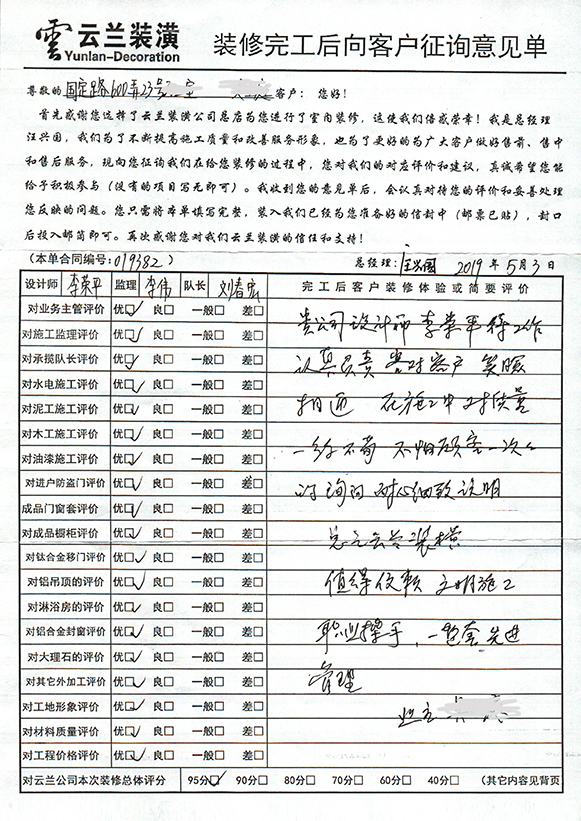 雲 云兰装潢
Yunlan-Decoration
装修完工后向客户征询意见单
尊敬的 国定路600弄23号 室 客户： 您好！
首先感谢您选择了云兰装潢公司总店为您进行了室内装修，这使我们倍感荣幸！我是总经理
汪兴国，我们为了不断提高施工质量和改善服务形象，也为了更好的为广大客户做好售前、售中
和售后服务，现向您征询我们在给您装修的过程中，您对我们的对应评价和建议，真诚希望您能
给予积极参与（没有的项目写无即可）。我收到您的意见单后，会认真对待您的评价和妥善处理
您反映的问题。您只需将本单填写完整，装入我们已经为您准备好的信封中（邮票已贴），封口
后投入邮筒即可。再次感谢您对我们云兰装潢的信任和支持！
（本单合同编号：019382） 总经理：汪兴国 2019 年 5 月 3 日
设计师 李荣平 监理 李伟 队长 刘春宏 完工后客户装修体验或简要评价
对业务主管评价 优☑ 良□ 一般□ 差□ 贵公司设计师李荣平待工作
对施工监理评价 优☑ 良□ 一般□ 差□
对承揽队长评价 优☑ 良□ 一般□ 差□ 认真负责 对客户 笑脸
对水电施工评价 优☑ 良□ 一般□ 差□
对泥工施工评价 优☑ 良□ 一般□ 差□ 相迎 在施工中对质量
对木工施工评价 优☑ 良□ 一般□ 差□ 一丝不苟 不怕顾客一次次
对油漆施工评价 优☑ 良□ 一般□ 差□
对进户防盗门评价 优☑ 良□ 一般□ 差□ 的询问 耐心细致说明
成品门窗套评价 优☑ 良□ 一般□ 差□
对成品橱柜评价 优☑ 良□ 一般□ 差□ 总之云兰装潢
对钛合金移门评价 优☑ 良□ 一般□ 差□
对铝吊顶的评价 优☑ 良□ 一般□ 差□ 值得信赖 文明施工
对淋浴房的评价 优☑ 良□ 一般□ 差□
对铝合金封窗评价 优☑ 良□ 一般□ 差□ 职业操手，一整套先进
对大理石的评价 优☑ 良□ 一般□ 差□
对其它外加工评价 优☑ 良□ 一般□ 差□ 管理
对工地形象评价 优☑ 良□ 一般□ 差□ 业主
对材料质量评价 优☑ 良□ 一般□ 差□
对工程价格评价 优☑ 良□ 一般□ 差□
对云兰公司本次装修总体评分 95分☑ 90分□ 80分□ 70分□ 60分□ 40分□ （其它内容见背页